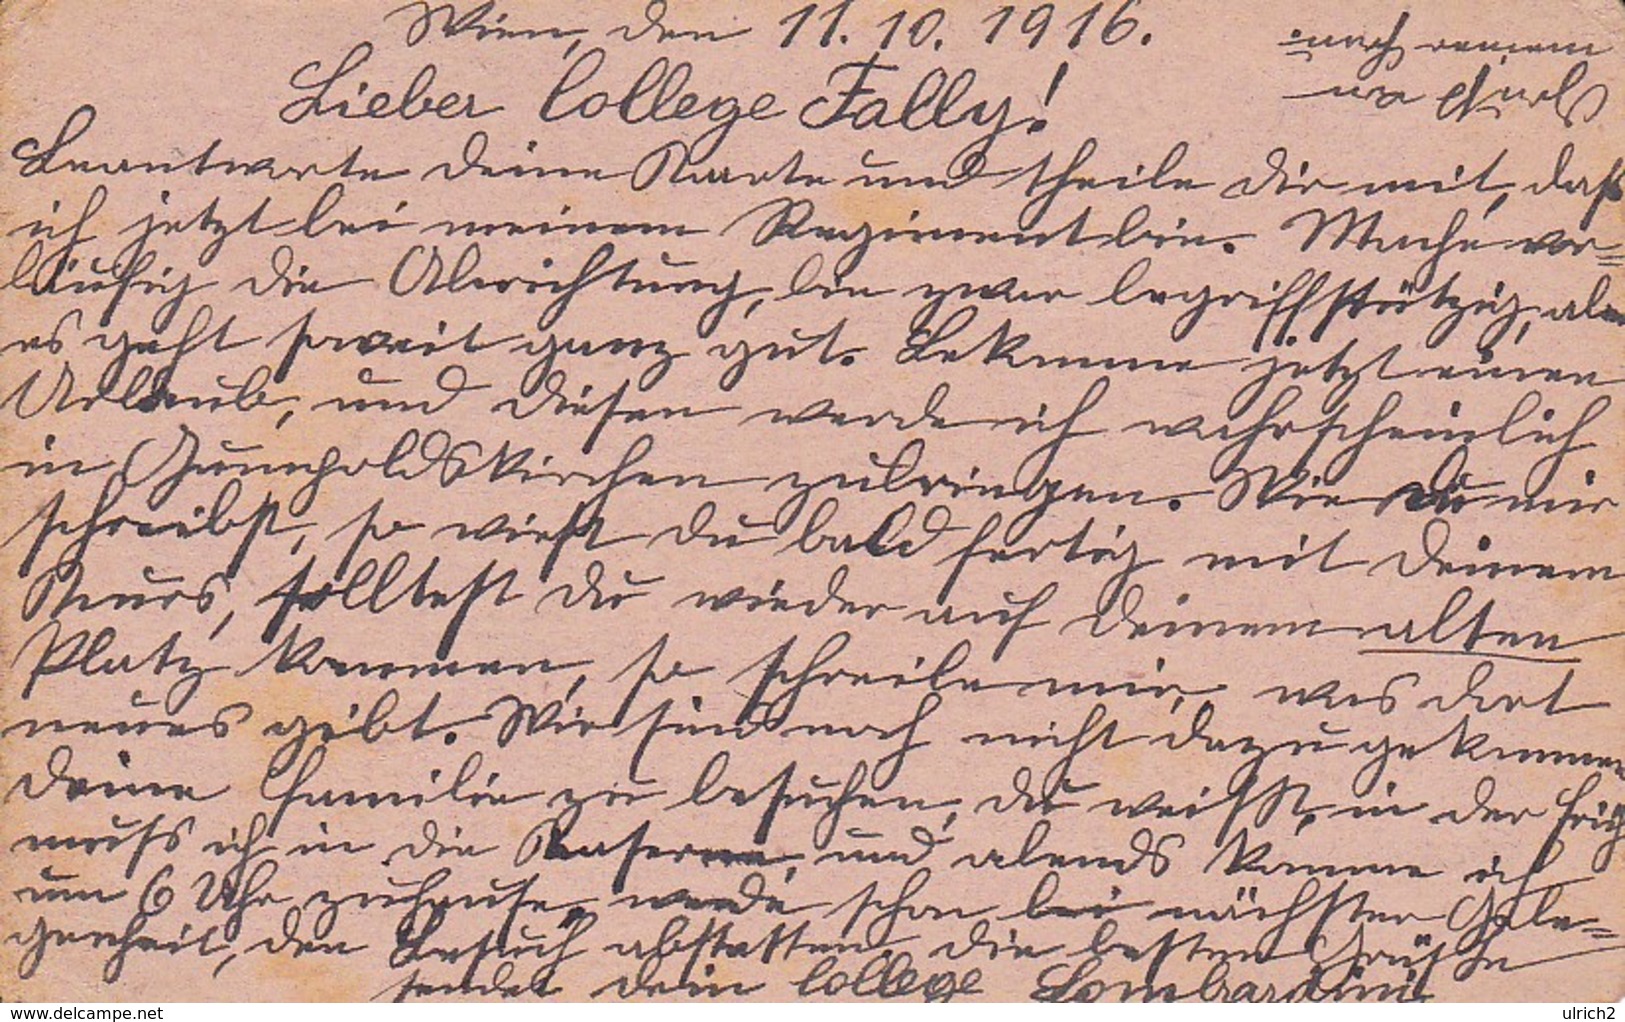 Wien, den 11. 10. 1916.
Lieber College Fally!
Beantworte deine Kaarte und theile dir mit, daß
ich jetzt bei meinem Regiment bin. Mache vor=
läufig die Abrichtung, bin zwar begriffsstützig, aber
es geht soweit ganz gut. Bekomme jetzt einen
Urlaub, und diesen werde ich wahrscheinlich
in Gumpoldskirchen zubringen. Wie du mir
schreibst, so wirst du bald fertig mit deinem
Kurs, solltest du wieder auf deinem alten
Platz kommen, so schreibe mir, was dort
neues gibt. Wir sind noch nicht dazu gekommen
deine Familie zu besuchen, du weißt, in der Früh
muß ich in die Kaserne, und abends komme ich
um 6 Uhr zuhause, werde schon bei nächster Gele=
genheit, den Besuch abstatten. Die besten Grüße
sendet dein College Lombardini
nach
delcampe.net
ulrich2